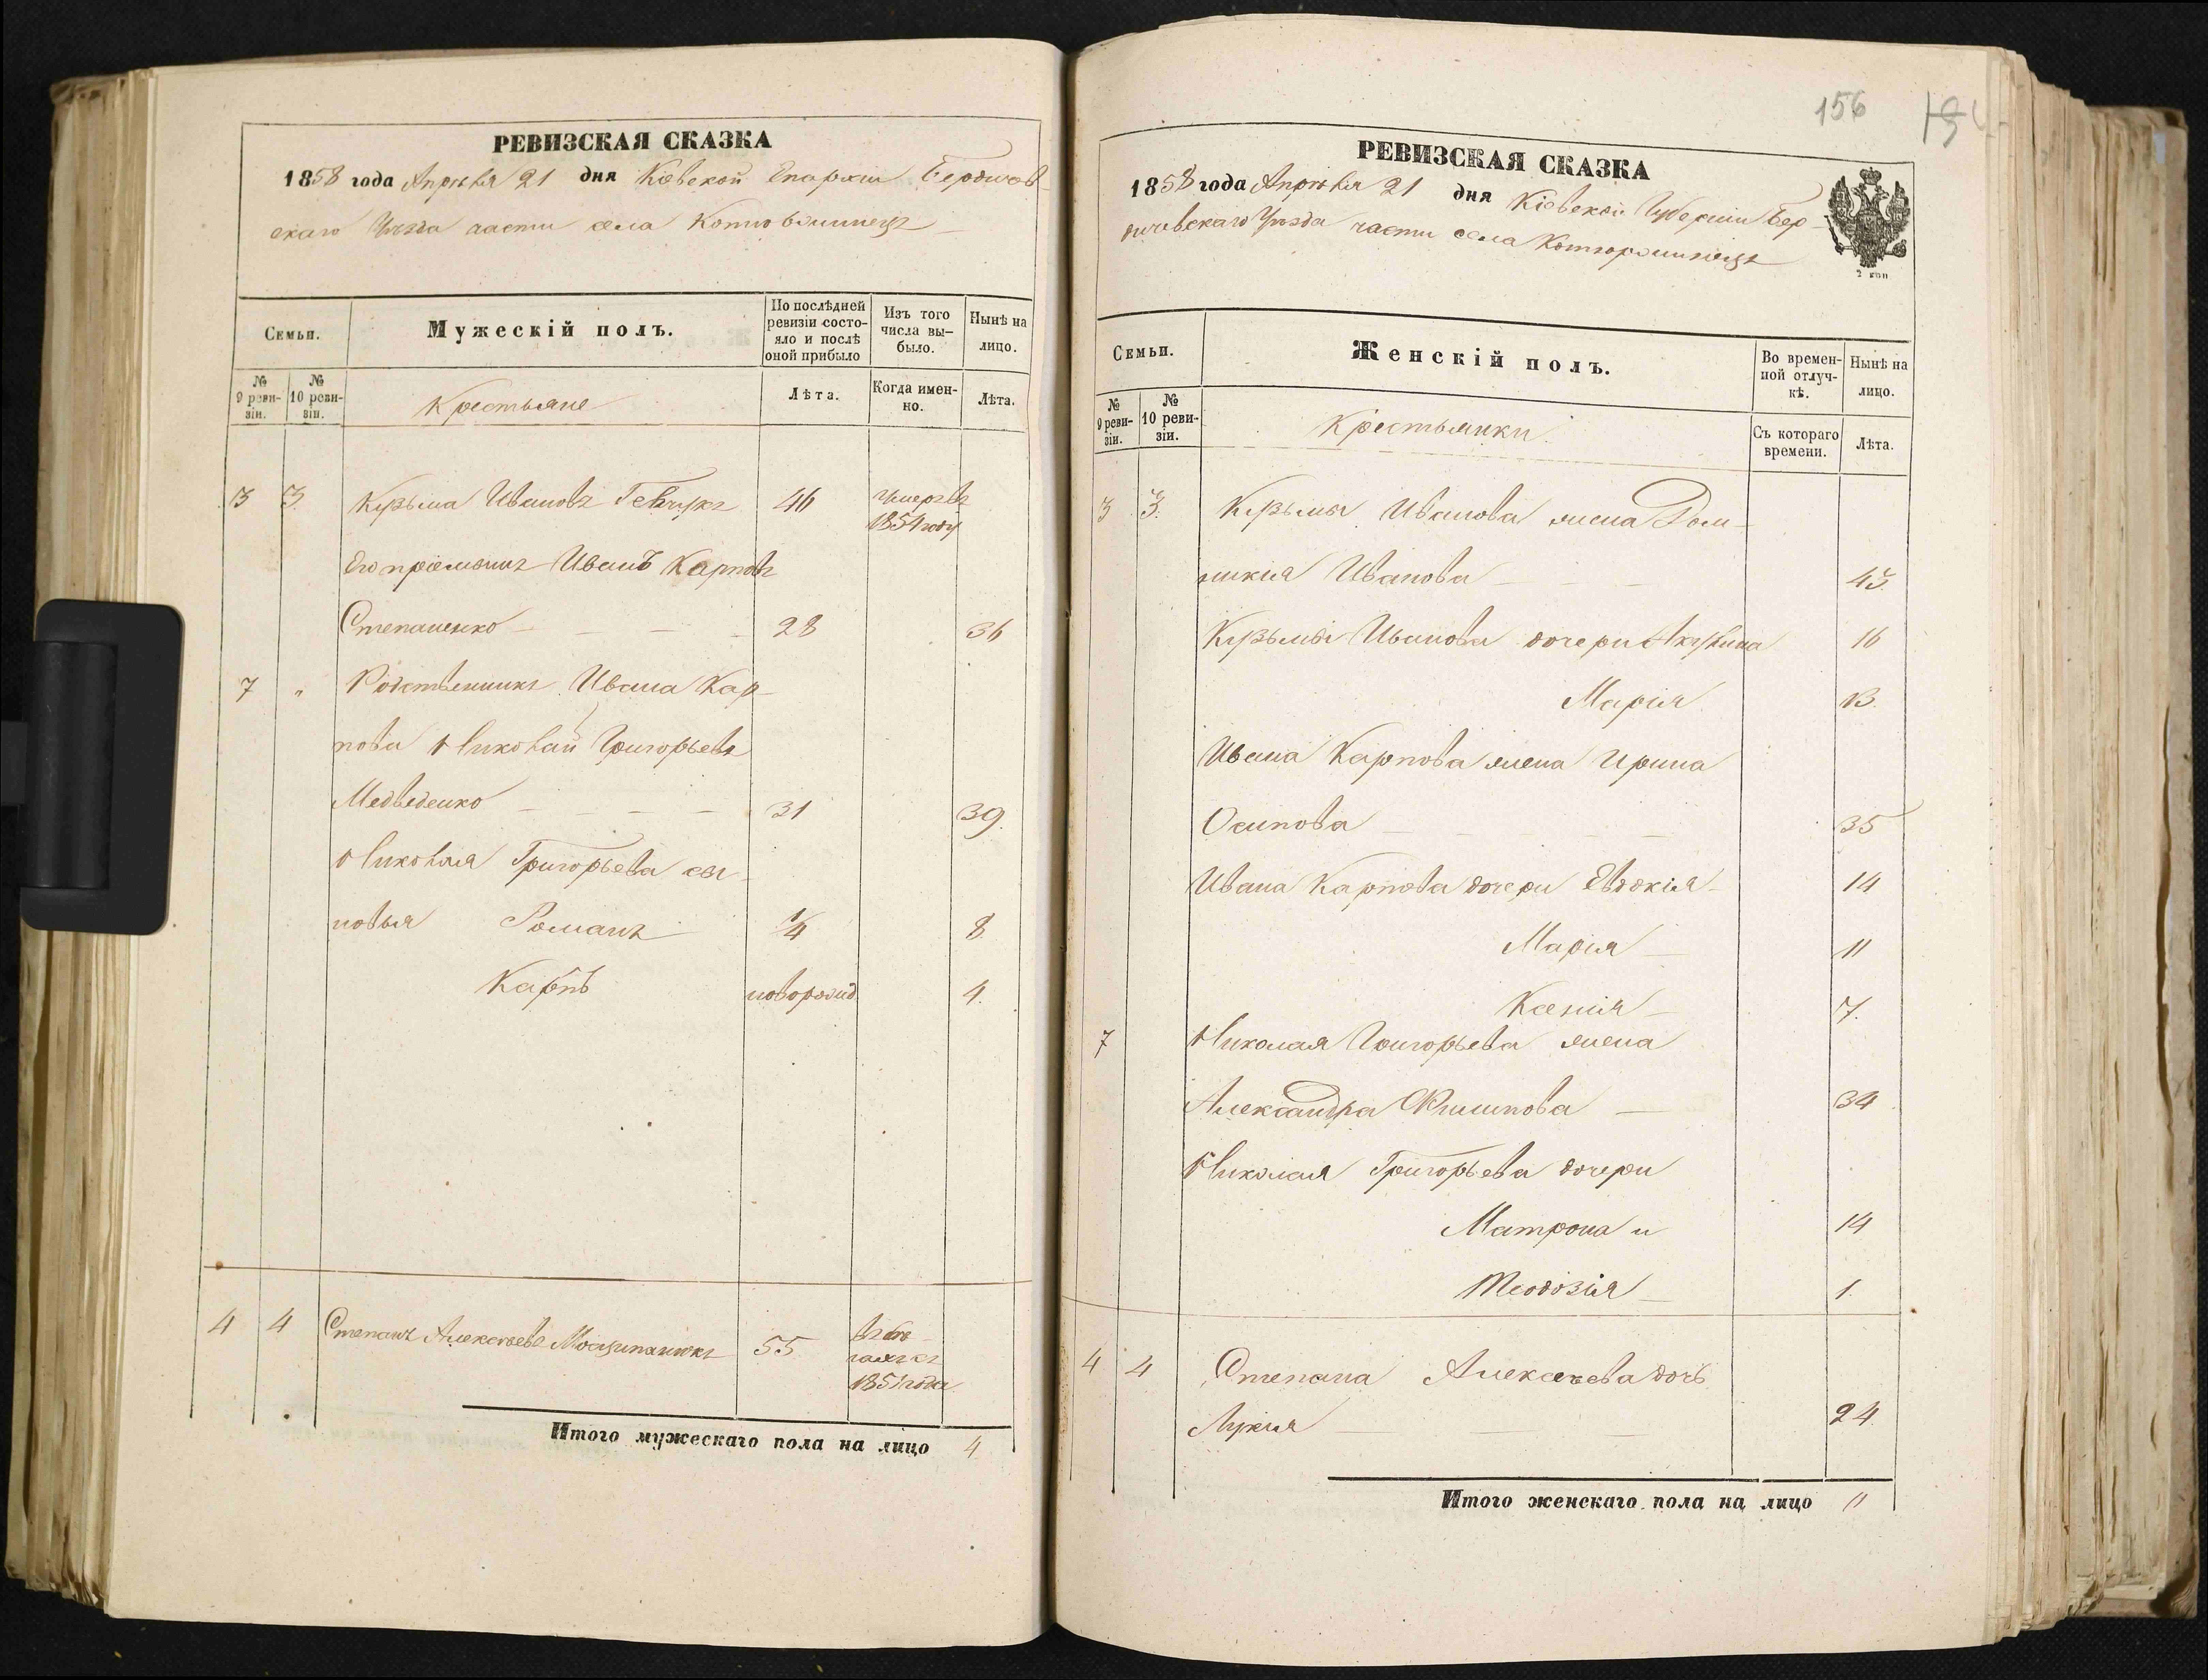 РЕВИЗСКАЯ СКАЗКА
1858 года Апрѣля 21 дня Кіевской Епархіи Бердичев-
скаго Уѣзда части села
Семьи.
Мужескій полъ.
По послѣдней ревизіи состо-
яло и послѣ оной прибыло
Изъ того числа вы-
было.
Нынѣ на лицо.
№ 9 реви-
зіи.
№ 10 реви-
зіи.
Крестьяне
Лѣта.
Когда имен-
но.
Лѣта.
3 3. Кузьма Ивановъ 46 умеръ въ
1854 году
Его пріемышъ Иванъ Карповъ
Степаненко 28 36
7 " Родственникъ Ивана Кар-
пова Николай Григорьевъ
Медведенко 31 39.
Николая Григорьева сы-
новья Романъ 1/4 8
Карпъ новорожд. 4.
4 4 Степанъ Алексѣевъ 55
1851 года
Итого мужескаго пола на лицо 4
156
РЕВИЗСКАЯ СКАЗКА
1858 года Апрѣля 21 дня Кіевской Губерніи Бер-
дичевскаго Уѣзда части села
2 коп
Семьи.
Женскій полъ.
Во времен-
ной отлуч-
кѣ.
Нынѣ на лицо.
№ 9 реви-
зіи.
№ 10 реви-
зіи.
Крестьянки.
Съ котораго времени.
Лѣта.
3 3. Кузьмы Иванова жена Дом-
никія Иванова
Кузьмы Иванова дочери Акулина 16
Марія 13.
Ивана Карпова жена Ирина
Осипова 35
Ивана Карпова дочери Евдокія 14
Марія 11
Ксенія 7.
7 Николая Григорьева жена
Александра Филипова 34
Николая Григорьева дочери
Матрона и 14
Феодозія 1.
4 4 Степана Алексѣева дочь
Лукія 24
Итого женскаго пола на лицо 11